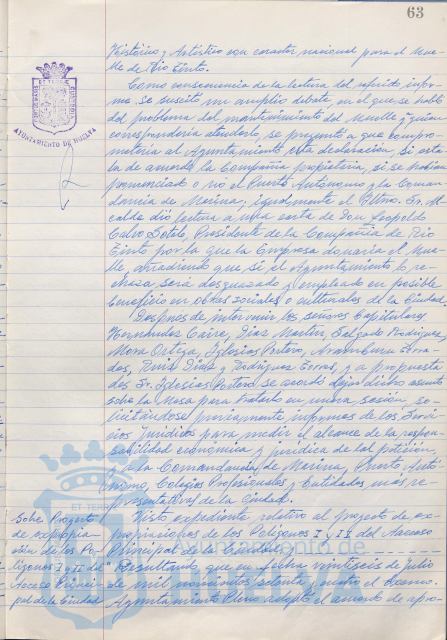 63
Histórico y Artístico con caracter nacional para el Mue-
lle de Rio Tinto.
Como consecuencia de la lectura del referido infor-
me se suscitó un amplio debate, en el que se habló
del problema del mantenimiento del Muelle y quien
correspondería atenderlo, se preguntó a que comprо-
metería al Ayuntamiento esta declaración, si esta-
ba de acuerdo la Compañía propietaria, si se habían
pronunciado o no el Puerto Autónomo y la Coman-
dancia de Marina; igualmente el Iltmo. Sr. Al-
calde dió lectura a una carta de Don Leopoldo
Calvo Sotelo, Presidente de la Compañía de Rio
Tinto por la que la Empresa donaría el Mue-
lle, añadiendo que si el Ayuntamiento lo re-
chaza será desguazado y empleado su posible
beneficio en obras sociales o culturales de la Ciudad.
Despues de intervenir los señores Capitulares
Hernández Caire, Diaz Martín, Salgado Rodriguez,
Mora Ortega, Iglesias Portero, Aramburu
Ruiz Diaz y Rodriguez y a propuesta
del Sr. Iglesias Portero se acordó dejar dicho asunto
sobre la Mesa para tratarlo en nueva sesión, so-
licitándose previamente informes de los Servi-
cios Jurídicos para medir el alcance de la respon-
sabilidad económica y jurídica de tal petición,
y a la Comandancia de Marina, Puerto Autó-
nomo, Colegios Profesionales y Entidades más re-
presentativas de la Ciudad.
Sobre Proyecto
de expropia-
ción de los Po-
lígonos I y II del
Acceso Princi-
pal de la Ciudad
Visto expediente relativo al proyecto de ex-
propiaciones de los Polígonos I y II del Acceso
Principal de la Ciudad.
Resultando, que en fecha veintiseis de julio
de mil novecientos setenta y cuatro el Excmo.
Ayuntamiento Pleno adoptó el acuerdo de apro-
AYUNTAMIENTO DE HUELVA